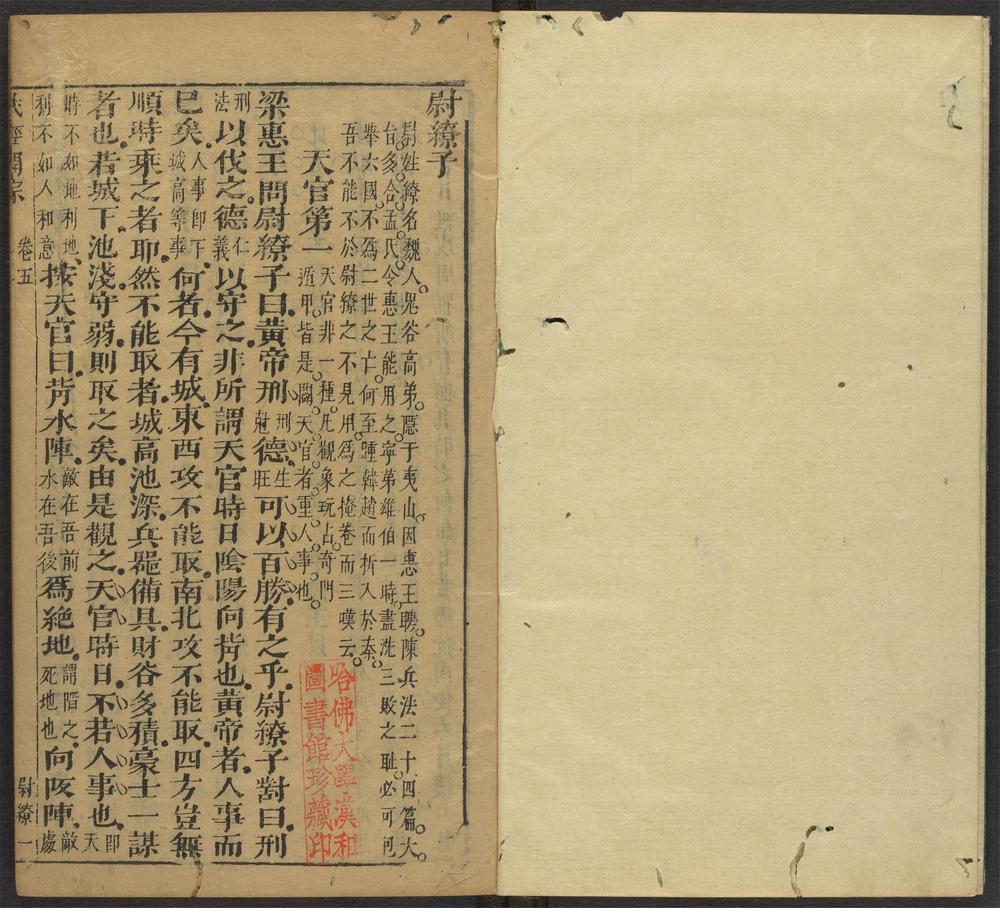 尉繚子
尉姓繚名魏人鬼谷高弟隱于夷山因惠王聘陳兵法二十四篇大
㫖多合孟氏令惠王能用之寧第雄伯一時盡洗三敗之耻必可
擧六國不爲二世之亡何至踵韓趙而折入於秦
吾不能不於尉繚之不見用爲之掩卷而三嘆云
天官第一 天官非一種凡觀象玩占奇門遁甲皆是闢天官者重人事也
梁惠王問尉繚子曰黃帝刑刑尅德生旺可以百勝有之乎尉繚子對曰刑
刑法以伐之德仁義以守之非所謂天官時日陰陽向背也黃帝者人事而
巳矣人事即下城高等事何者今有城東西攻不能取南北攻不能取四方豈無
順時乘之者耶然不能取者城高池深兵噐備具財谷多積豪士一謀
者也若城下池淺守弱則取之矣由是觀之天官時日不若人事也即天
時不如地利地利不如人和意按天官曰背水陣敵在吾前水在吾後爲絶地謂陷之死地也向阪陣敵處
兵經開宗 卷五 尉繚 一
哈佛大學漢和
圖書館珍藏印